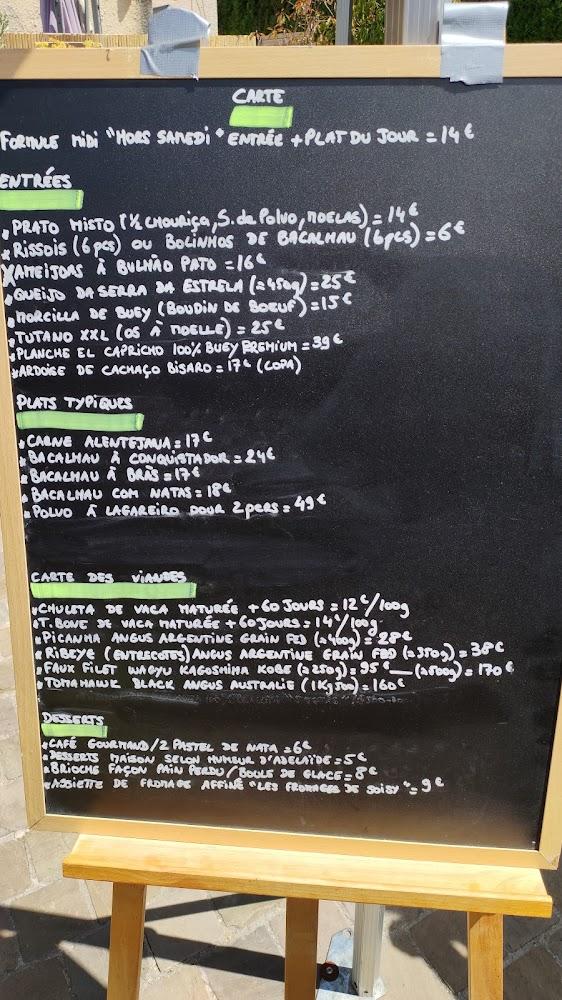 CARTE
FORMULE MIDI "HORS SAMEDI" ENTRÉE + PLAT DU JOUR = 14€
ENTRÉES
* PRATO MISTO (1/2 CHOURIÇA, S. de Polvo, MOELAS) = 14€
* RISSOIS (6 pcs) OU BOLINHOS DE BACALHAU (6 pcs) = 6€
* AMEIJOAS À BULHÃO PATO = 16€
* QUEIJO DA SERRA DA ESTRELA (≃450g) = 25€
* MORCILLA DE BUEY (BOUDIN DE BOEUF) = 15€
* TUTANO XXL (OS À MOELLE) = 25€
* PLANCHE EL CAPRICHO 100% BUEY PREMIUM = 39€
* ARDOISE DE CACHAÇO BISARO = 17€ (COPA)
PLATS TYPIQUES
* CARNE ALENTEJANA = 17€
* BACALHAU À CONQUISTADOR = 24€
* BACALHAU À BRÀS = 17€
* BACALHAU COM NATAS = 18€
* POLVO À LAGAREIRO POUR 2 pers = 49€
CARTE DES VIANDES
* CHULETA DE VACA MATURÉE + 60 JOURS = 12€/100g
* T. BONE DE VACA MATURÉE + 60 JOURS = 14€/100g
* PICANHA ANGUS ARGENTINE GRAIN FED (≃400g) = 28€
* RIBEYE (ENTRECÔTES) ANGUS ARGENTINE GRAIN FED (≃350g) = 38€
* FAUX FILET WAGYU KAGOSHIMA KOBE (≃250g) = 95€ — (≃500g) = 170€
* TOMAHAWK BLACK ANGUS AUSTRALIE (1Kg500) = 160€
DESSERTS
* CAFÉ GOURMAND/2 PASTEL DE NATA = 6€
* DESSERTS MAISON SELON HUMEUR D'ADELAÏDE = 5€
* BRIOCHE FAÇON PAIN PERDU/BOULE DE GLACE = 8€
* ASSIETTE DE FROMAGE AFFINÉ "LES FROMAGES DE SOISY" = 9€